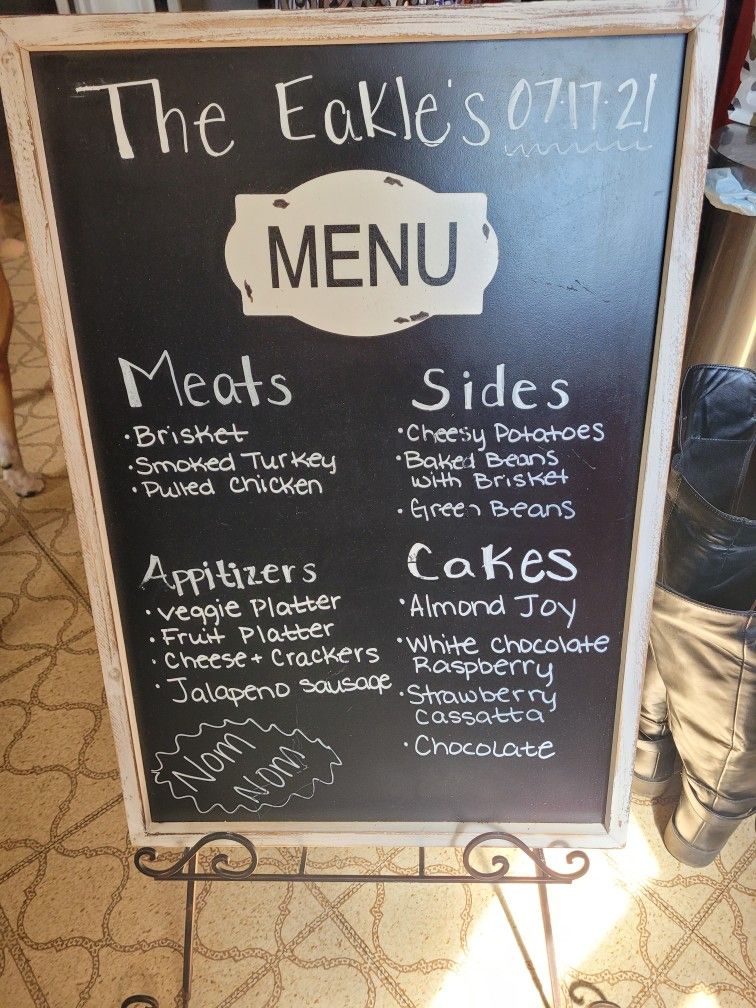 The Eakle's 07.17.21
MENU
Meats
• Brisket
• Smoked Turkey
• Pulled Chicken
Sides
• Cheesy Potatoes
• Baked Beans
with Brisket
• Green Beans
Appitizers
• veggie Platter
• Fruit Platter
• Cheese + Crackers
• Jalapeno sausage
Nom
Nom
Cakes
• Almond Joy
• White chocolate
Raspberry
• Strawberry
Cassatta
• Chocolate